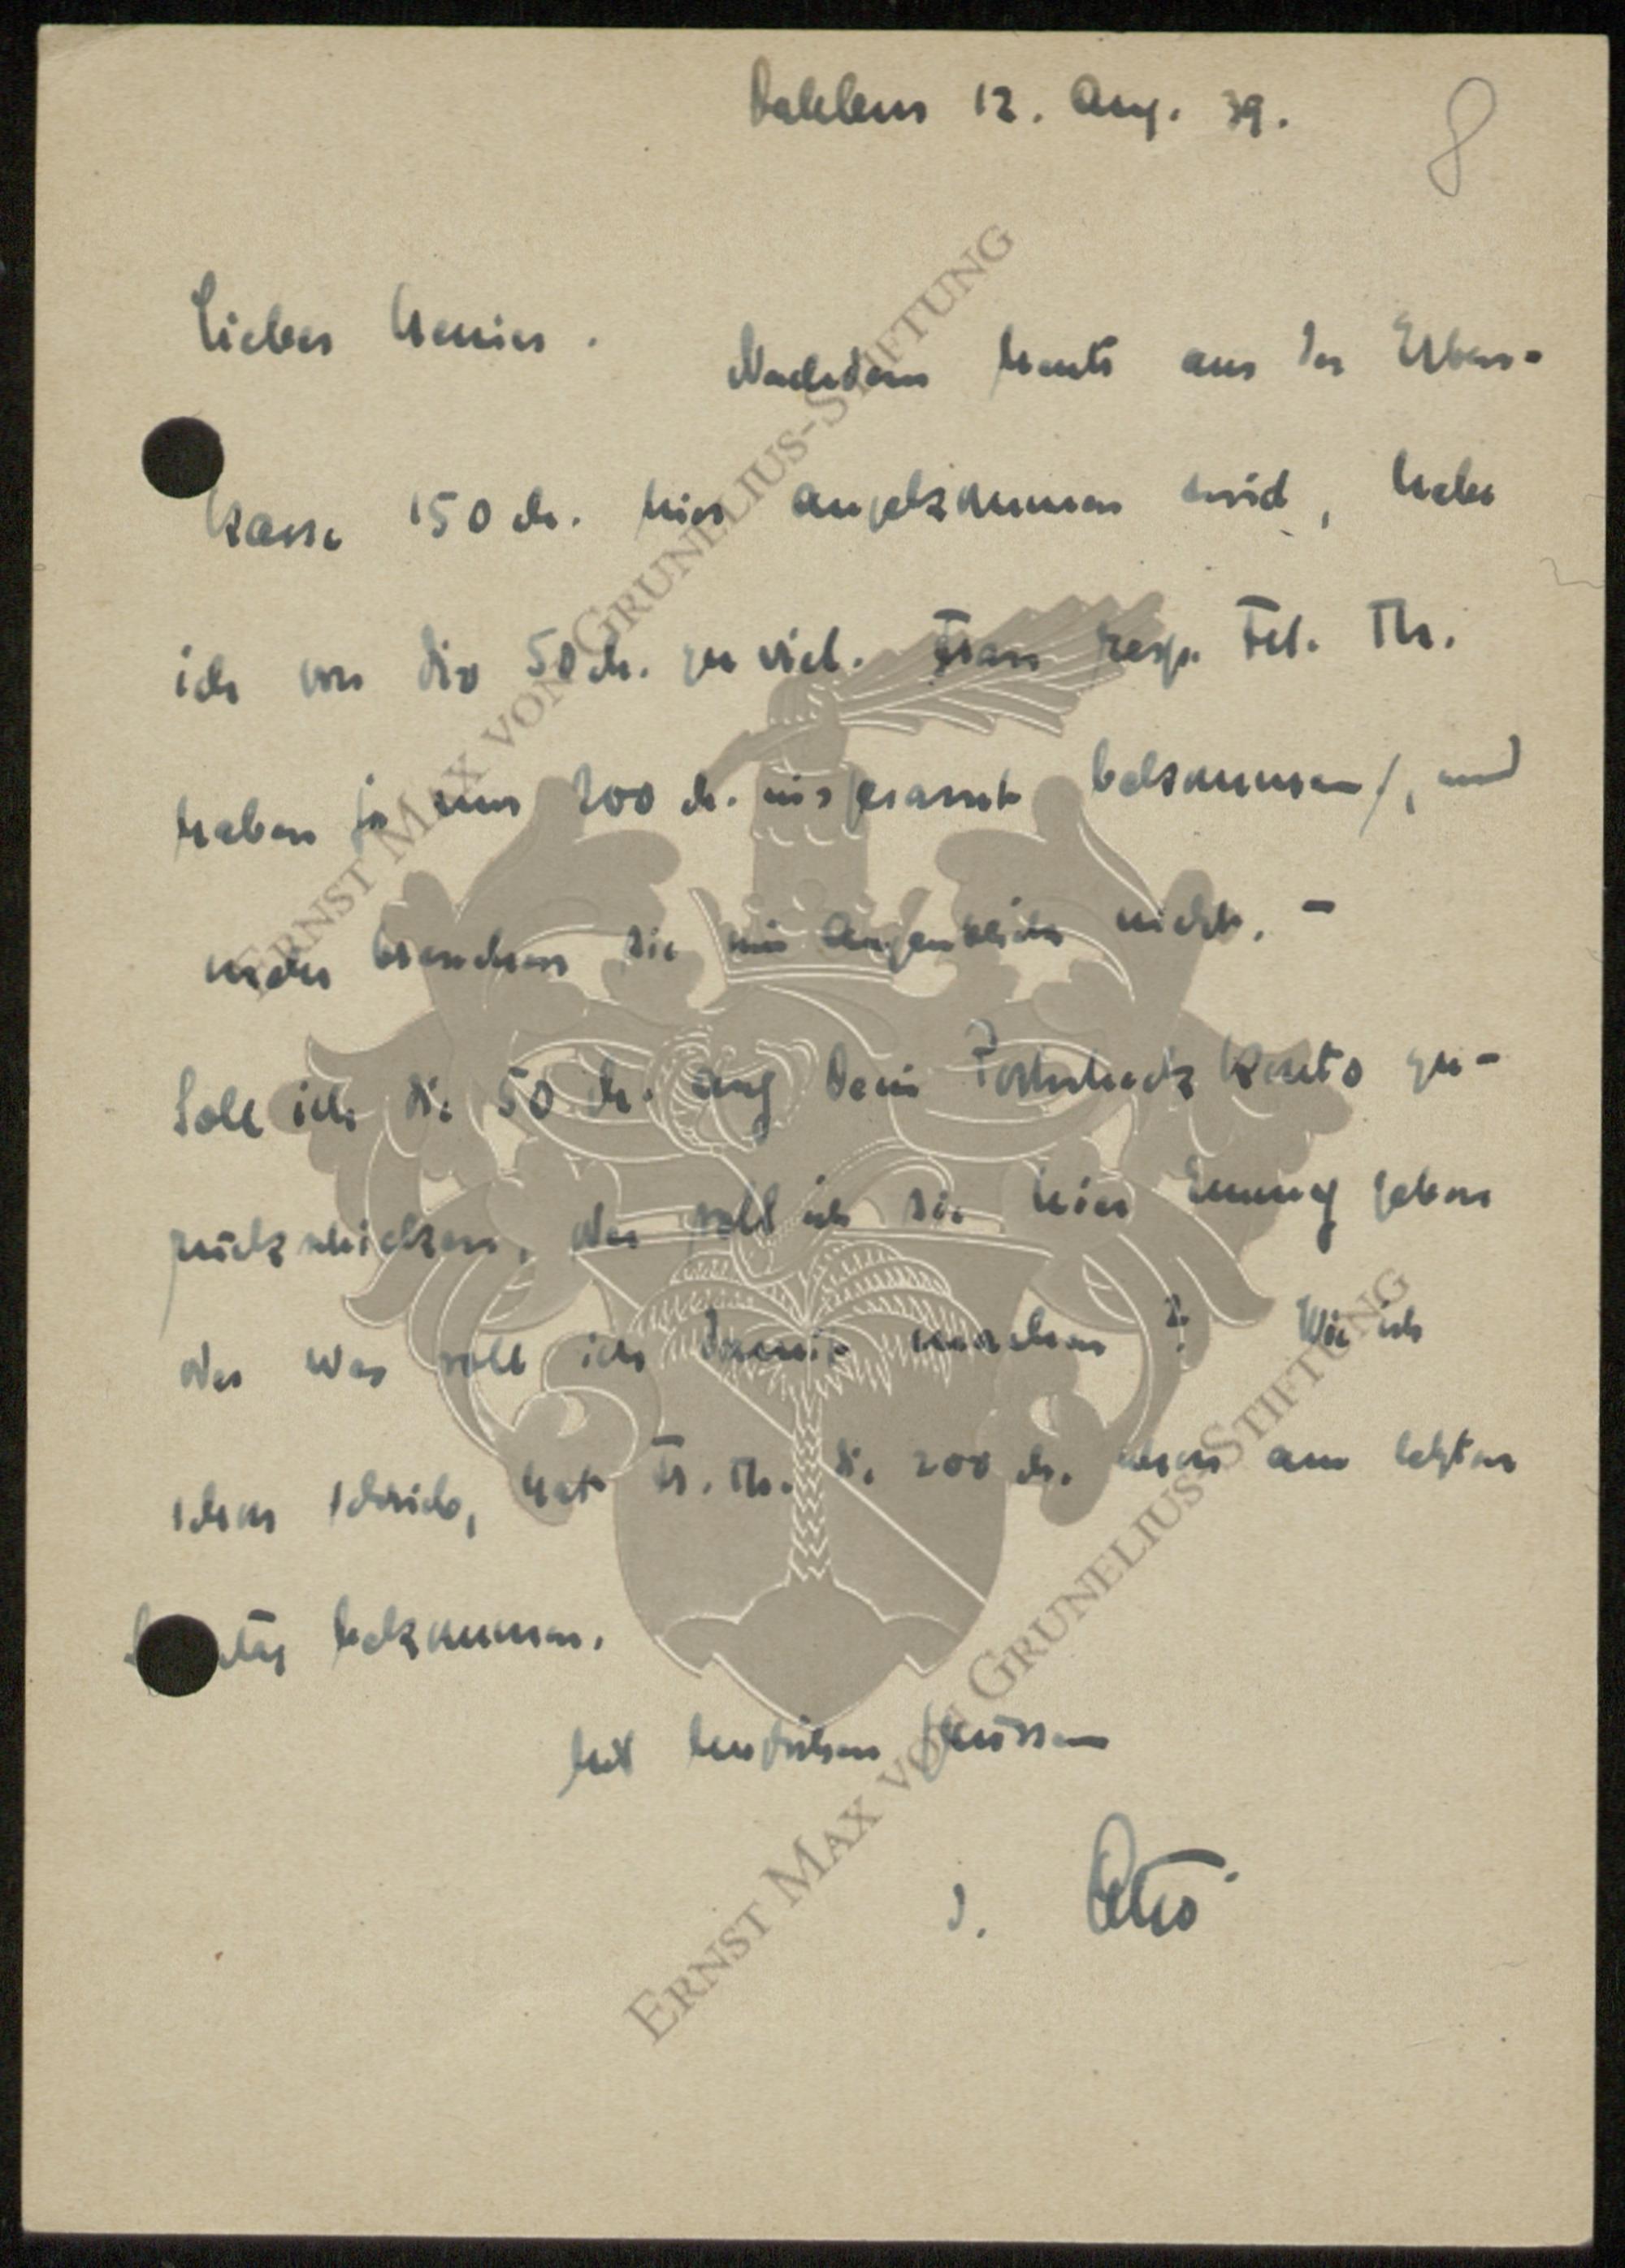 Dahlem 12. Aug. 39.
8
Lieber Henner.
Nachdem heute aus der Erben-
kasse 150 M. hier angekommen sind, habe
ich von dir 50 M. zu viel. Frau resp. Frl. Th.
haben ja nur 200 M. insgesamt bekommen, und
mehr brauchen sie im Augenblick nicht. -
Soll ich die 50 M. auf Dein Postscheckkonto zu-
rückschicken, oder soll ich sie hier geben
oder was soll ich damit machen? Wie ich
schon schrieb, hat Fr. Th. die 200 M. schon am letzten
bekommen.
Mit herzlichen Grüssen
D. Otto
ERNST MAX VON GRUNELIUS-STIFTUNG
ERNST MAX VON GRUNELIUS-STIFTUNG